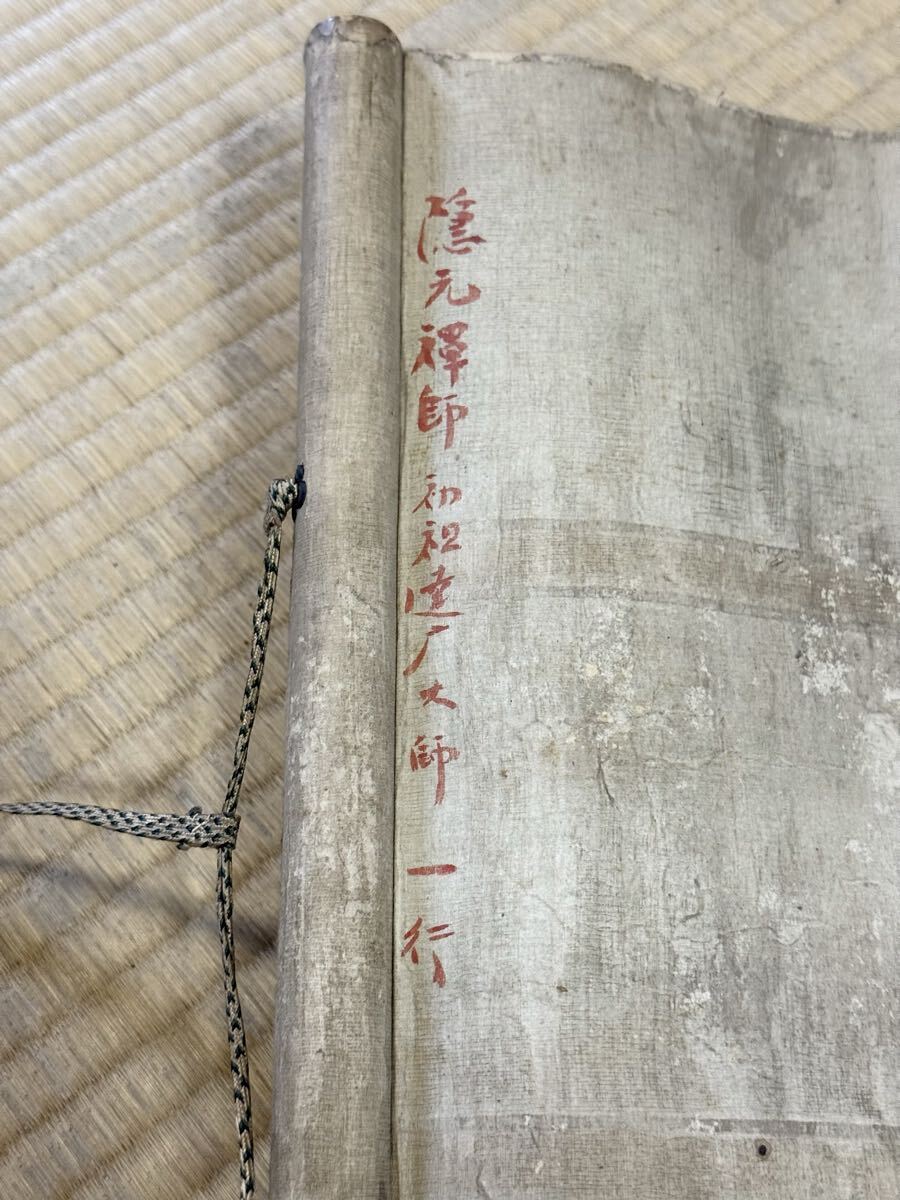 隠元禅師 初祖達广大師 一行